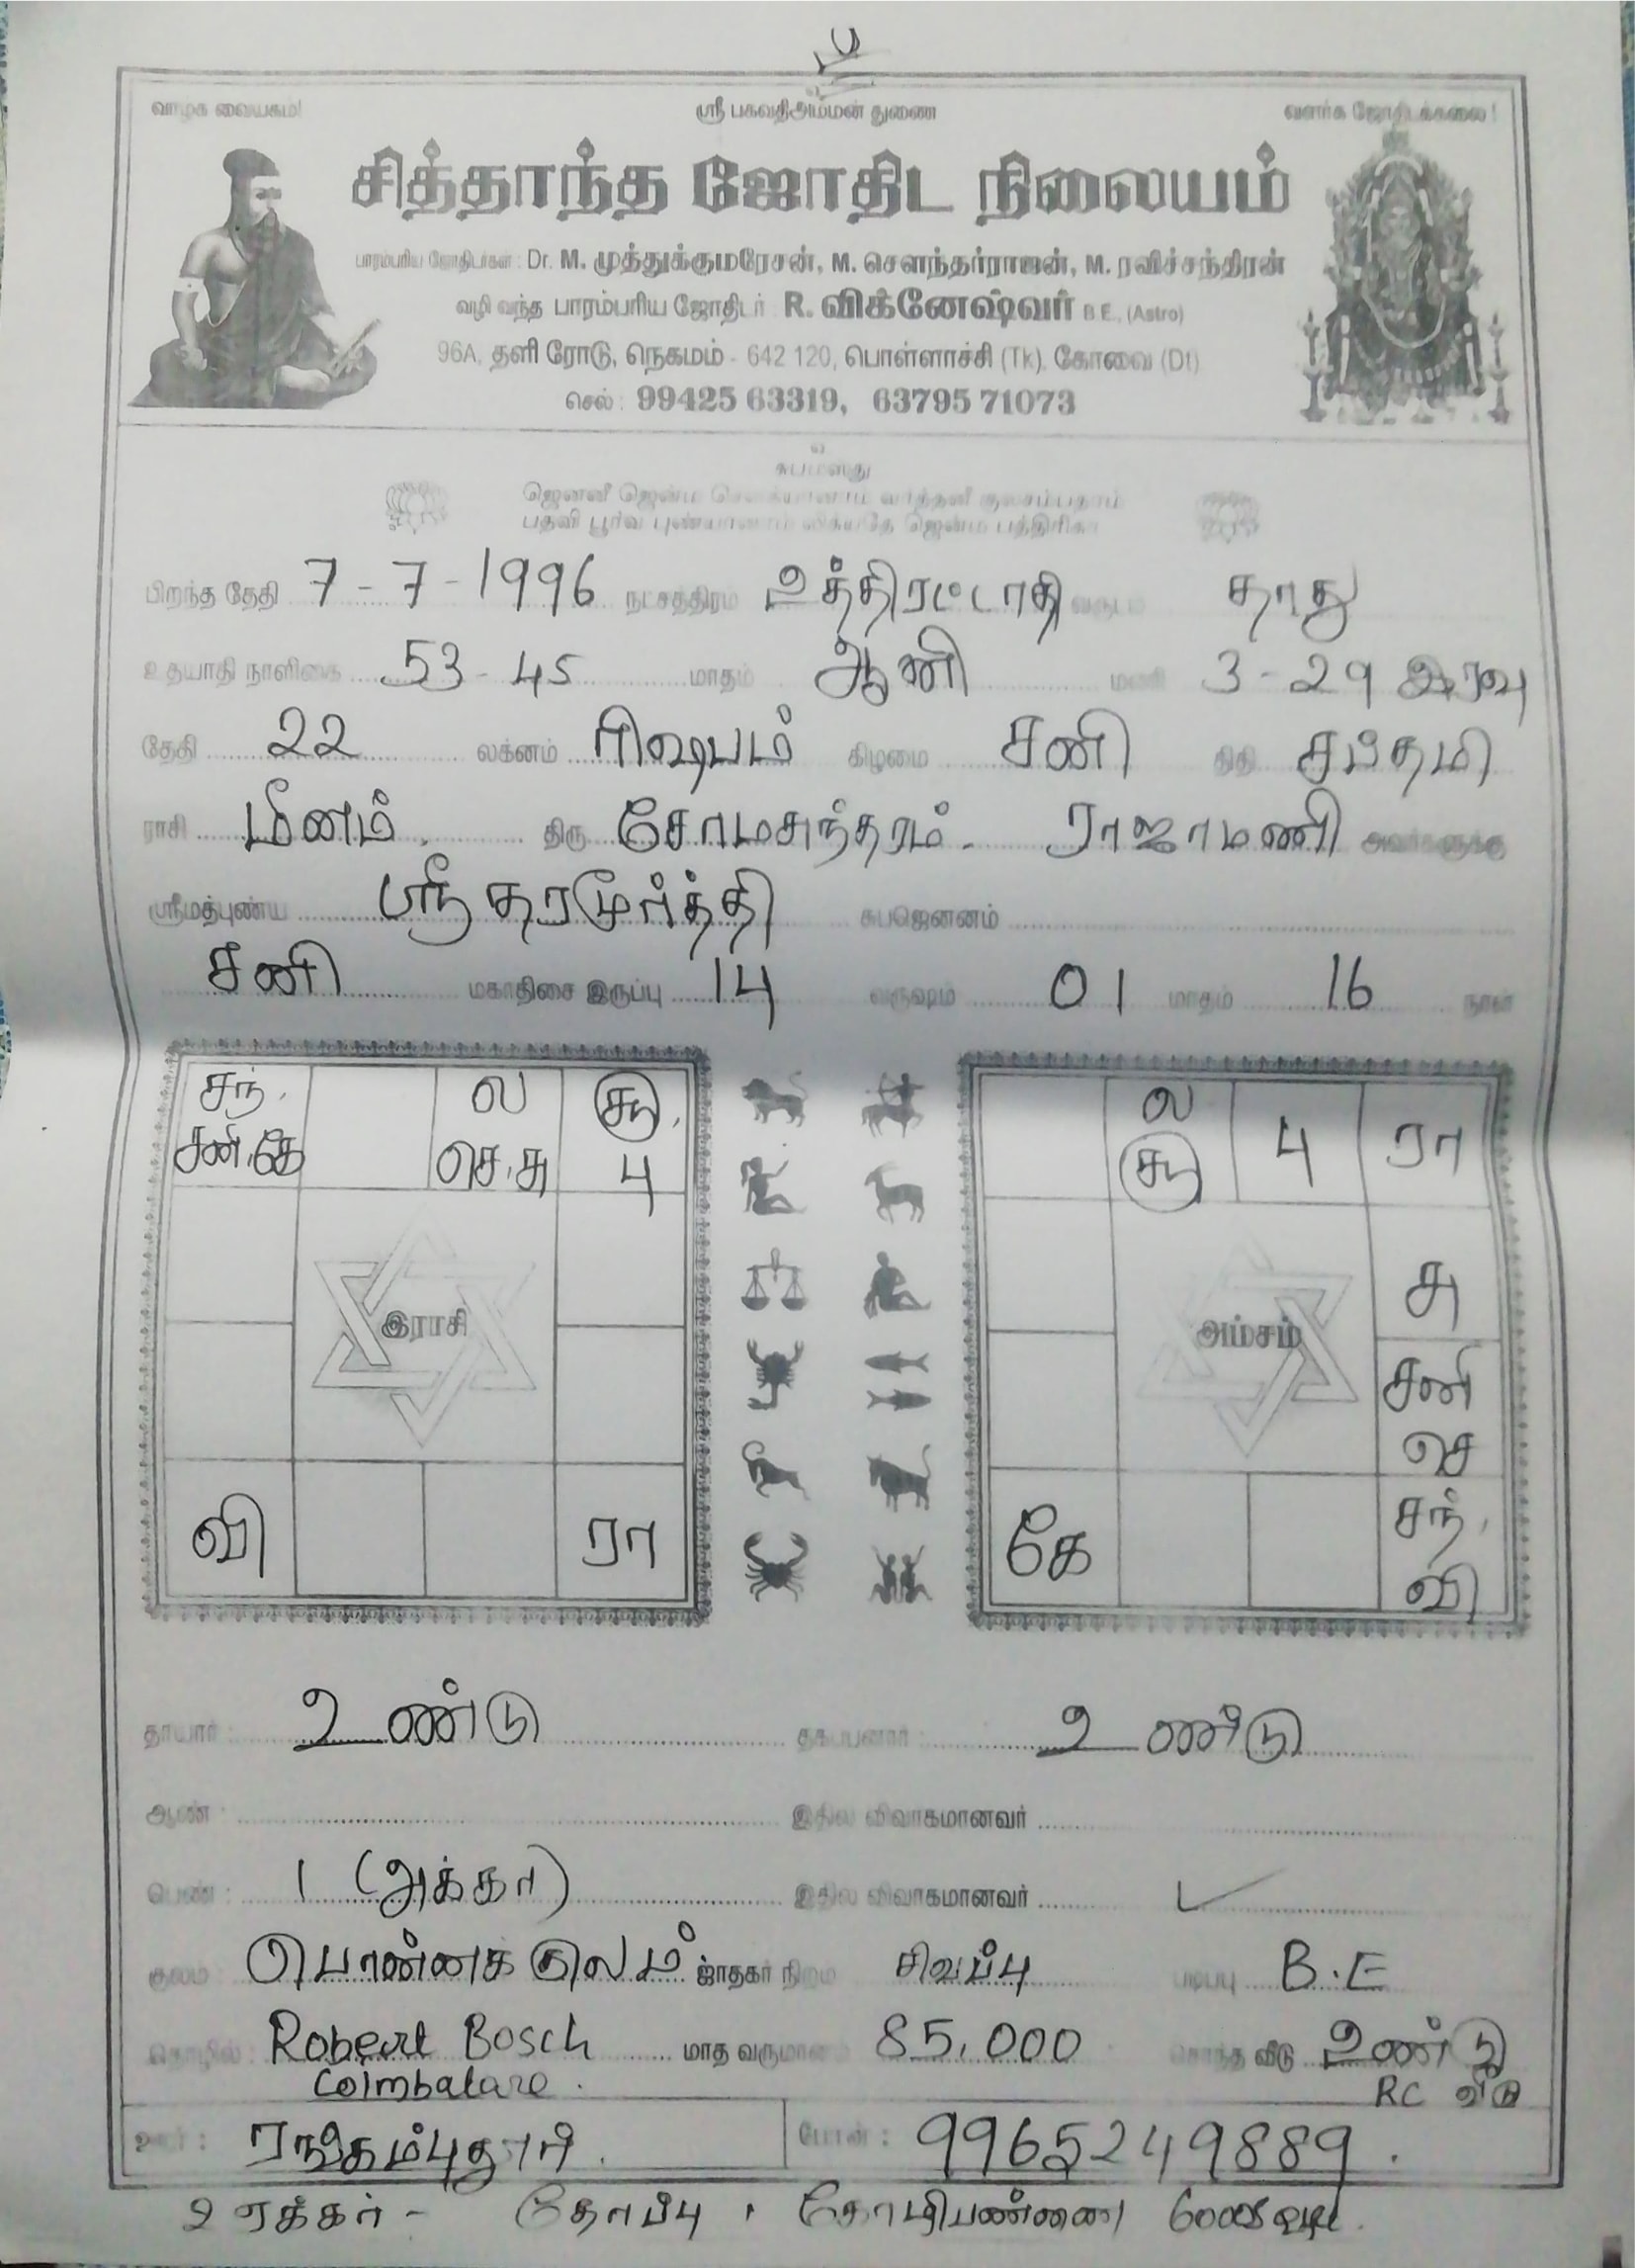 உ
வாழ்க வையகம்! ஸ்ரீ பகவதிஅம்மன் துணை வளர்க ஜோதிடக்கலை!
சித்தாந்த ஜோதிட நிலையம்
பாரம்பரிய ஜோதிடர்கள் : Dr. M. முத்துக்குமரேசன், M. சௌந்தர்ராஜன், M. ரவிச்சந்திரன்
வழி வந்த பாரம்பரிய ஜோதிடர் R. விக்னேஷ்வர் B.E., (Astro)
96A, தளி ரோடு, நெகமம் - 642 120, பொள்ளாச்சி (Tk), கோவை (Dt)
செல் : 99425 63319, 63795 71073
உ
சுபமஸ்து
ஜெனனீ ஜென்ம சௌக்யானாம் வர்த்தனீ குலசம்பதாம்
பதவி பூர்வ புண்யானாம் லிக்யதே ஜென்ம பத்திரிகா
பிறந்த தேதி 7 - 7 - 1996 நட்சத்திரம் உத்திரட்டாதி வருடம் தாது
உதயாதி நாளிகை 53 - 45 மாதம் ஆனி மணி 3 - 29 இரவு
தேதி 22 லக்னம் ரிஷபம் கிழமை சனி திதி சப்தமி
ராசி மீனம். திரு சோமசுந்தரம். ராஜாமணி அவர்களுக்கு
ஸ்ரீமத்புண்ய ஸ்ரீதரமூர்த்தி சுபஜெனனம்
சனி மகாதிசை இருப்பு 14 வருஷம் 01 மாதம் 16 நாள்
சந். ல சூ. ல சூ பு ரா
சனி.கே செ.சு பு
சு
இராசி அம்சம்
சனி
செ
வி ரா கே சந்.
வி
தாயார் : உண்டு தகப்பனார் : உண்டு
ஆண் : இதில் விவாகமானவர்
பெண் : 1 (அக்கா) இதில் விவாகமானவர் ✓
குலம் : பொன்னக் குலம் ஜாதகர் நிறம் சிவப்பு படிப்பு B.E
தொழில் : Robert Bosch மாத வருமானம் 85,000 சொந்த வீடு உண்டு
Coimbatore. RC வீடு
ஊர் : ரங்கம்புதூர். போன் : 9965249889.
2 ஏக்கர் - தோப்பு , கோழிபண்ணை